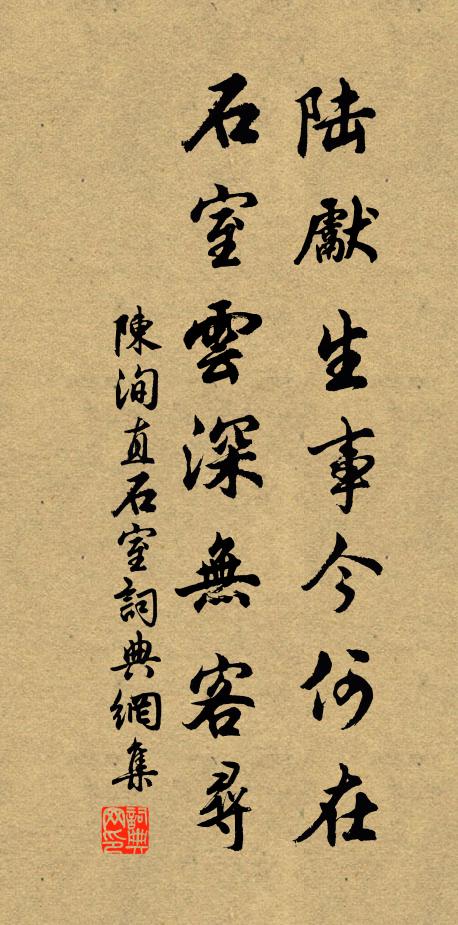 陸獻生事今何在
石室雲深無客尋
陳洵直石室詞典網集
詞典网印